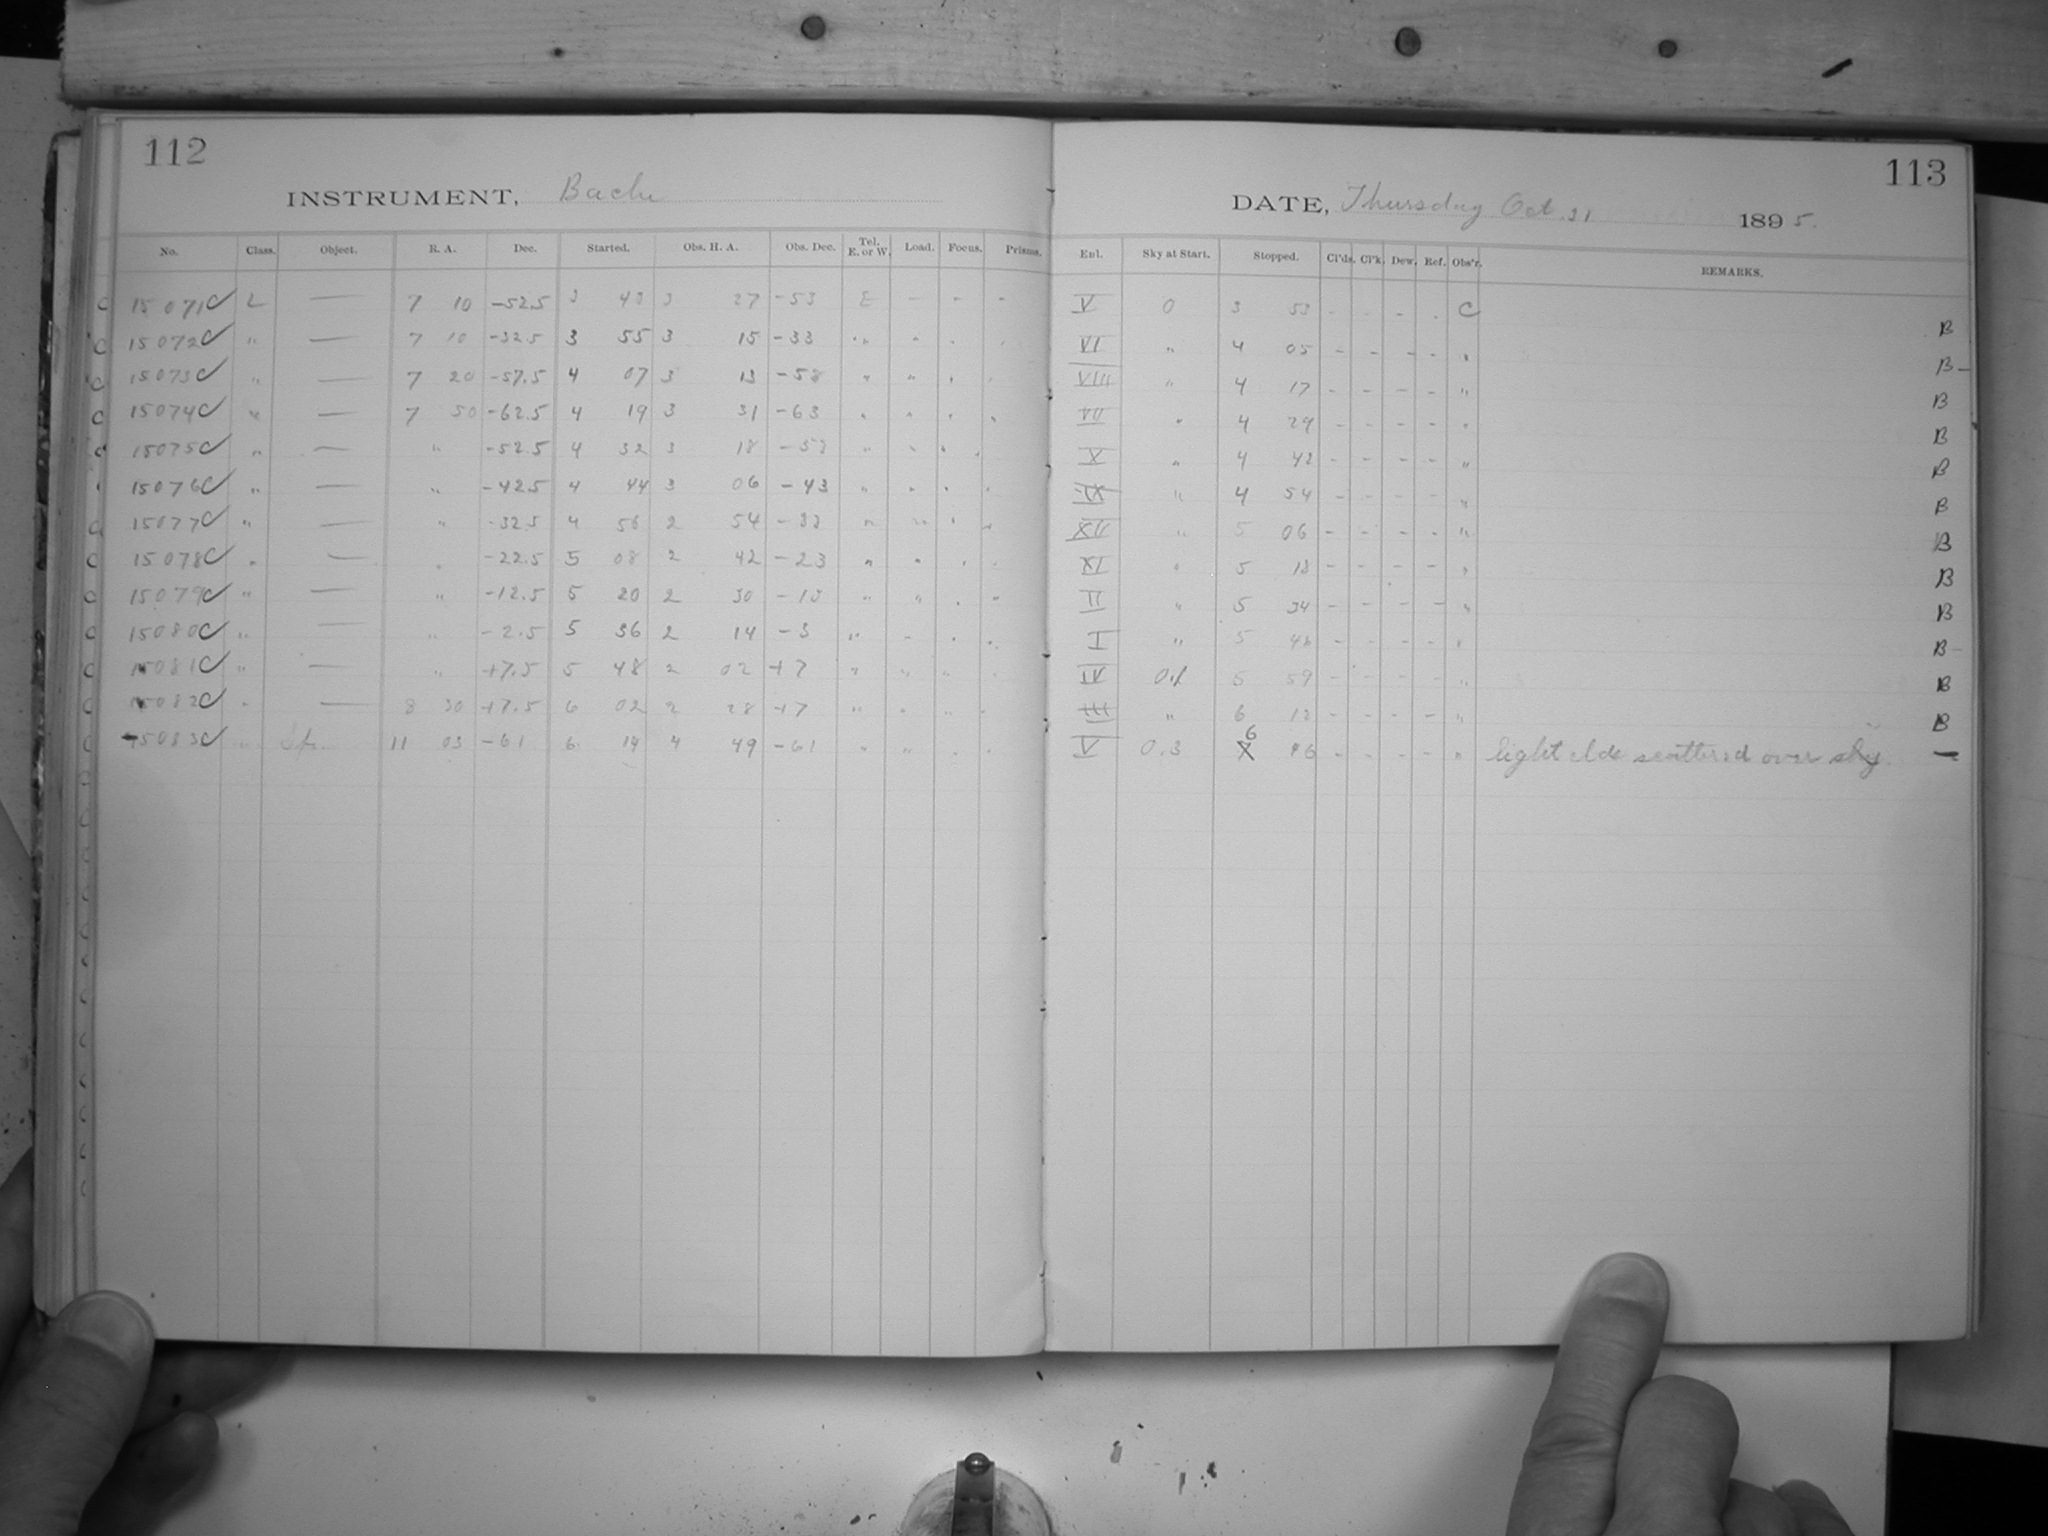 112
INSTRUMENT, Bache
No. Class. Object. R. A. Dec. Started. Obs. H. A. Obs. Dec. Tel. E. or W. Load. Focus. Prisms.
C 15071C L — 7 10 -52.5 3 43 3 27 -53 E - - -
C 15072C " — 7 10 -32.5 3 55 3 15 -33 " " " "
C 15073C " — 7 20 -57.5 4 07 3 13 -58 " " " "
C 15074C " — 7 50 -62.5 4 19 3 31 -63 " " " "
C 15075C " — " -52.5 4 32 3 18 -53 " " " "
15076C " — " -42.5 4 44 3 06 -43 " " " "
C 15077C " — " -32.5 4 56 2 54 -33 " " " "
C 15078C " — " -22.5 5 08 2 42 -23 " " " "
C 15079C " — " -12.5 5 20 2 30 -13 " " " "
C 15080C " — " -2.5 5 36 2 14 -3 " " " "
C 15081C " — " +7.5 5 48 2 02 +7 " " " "
C 15082C " — 8 30 +7.5 6 02 2 28 +7 " " " "
C 15083C " 11 03 -61 6 14 4 49 -61 " " " "
113
DATE, Thursday Oct. 31 1895.
Enl. Sky at Start. Stopped. Cl'ds. Cl'k. Dew. Ref. Obs'r. REMARKS.
V 0 3 53 - - - - C B
VI " 4 05 - - - - " B-
VIII " 4 17 - - - - " B
VII " 4 29 - - - - " B
X " 4 42 - - - - " B
IX " 4 54 - - - - " B
XII " 5 06 - - - - " B
XI " 5 18 - - - - " B
II " 5 34 - - - - " B
I " 5 46 - - - - " B-
IV 0.1 5 59 - - - - " B
III " 6 12 - - - - " B
V 0.3 6 - - - - " light clds scattered over sky. —